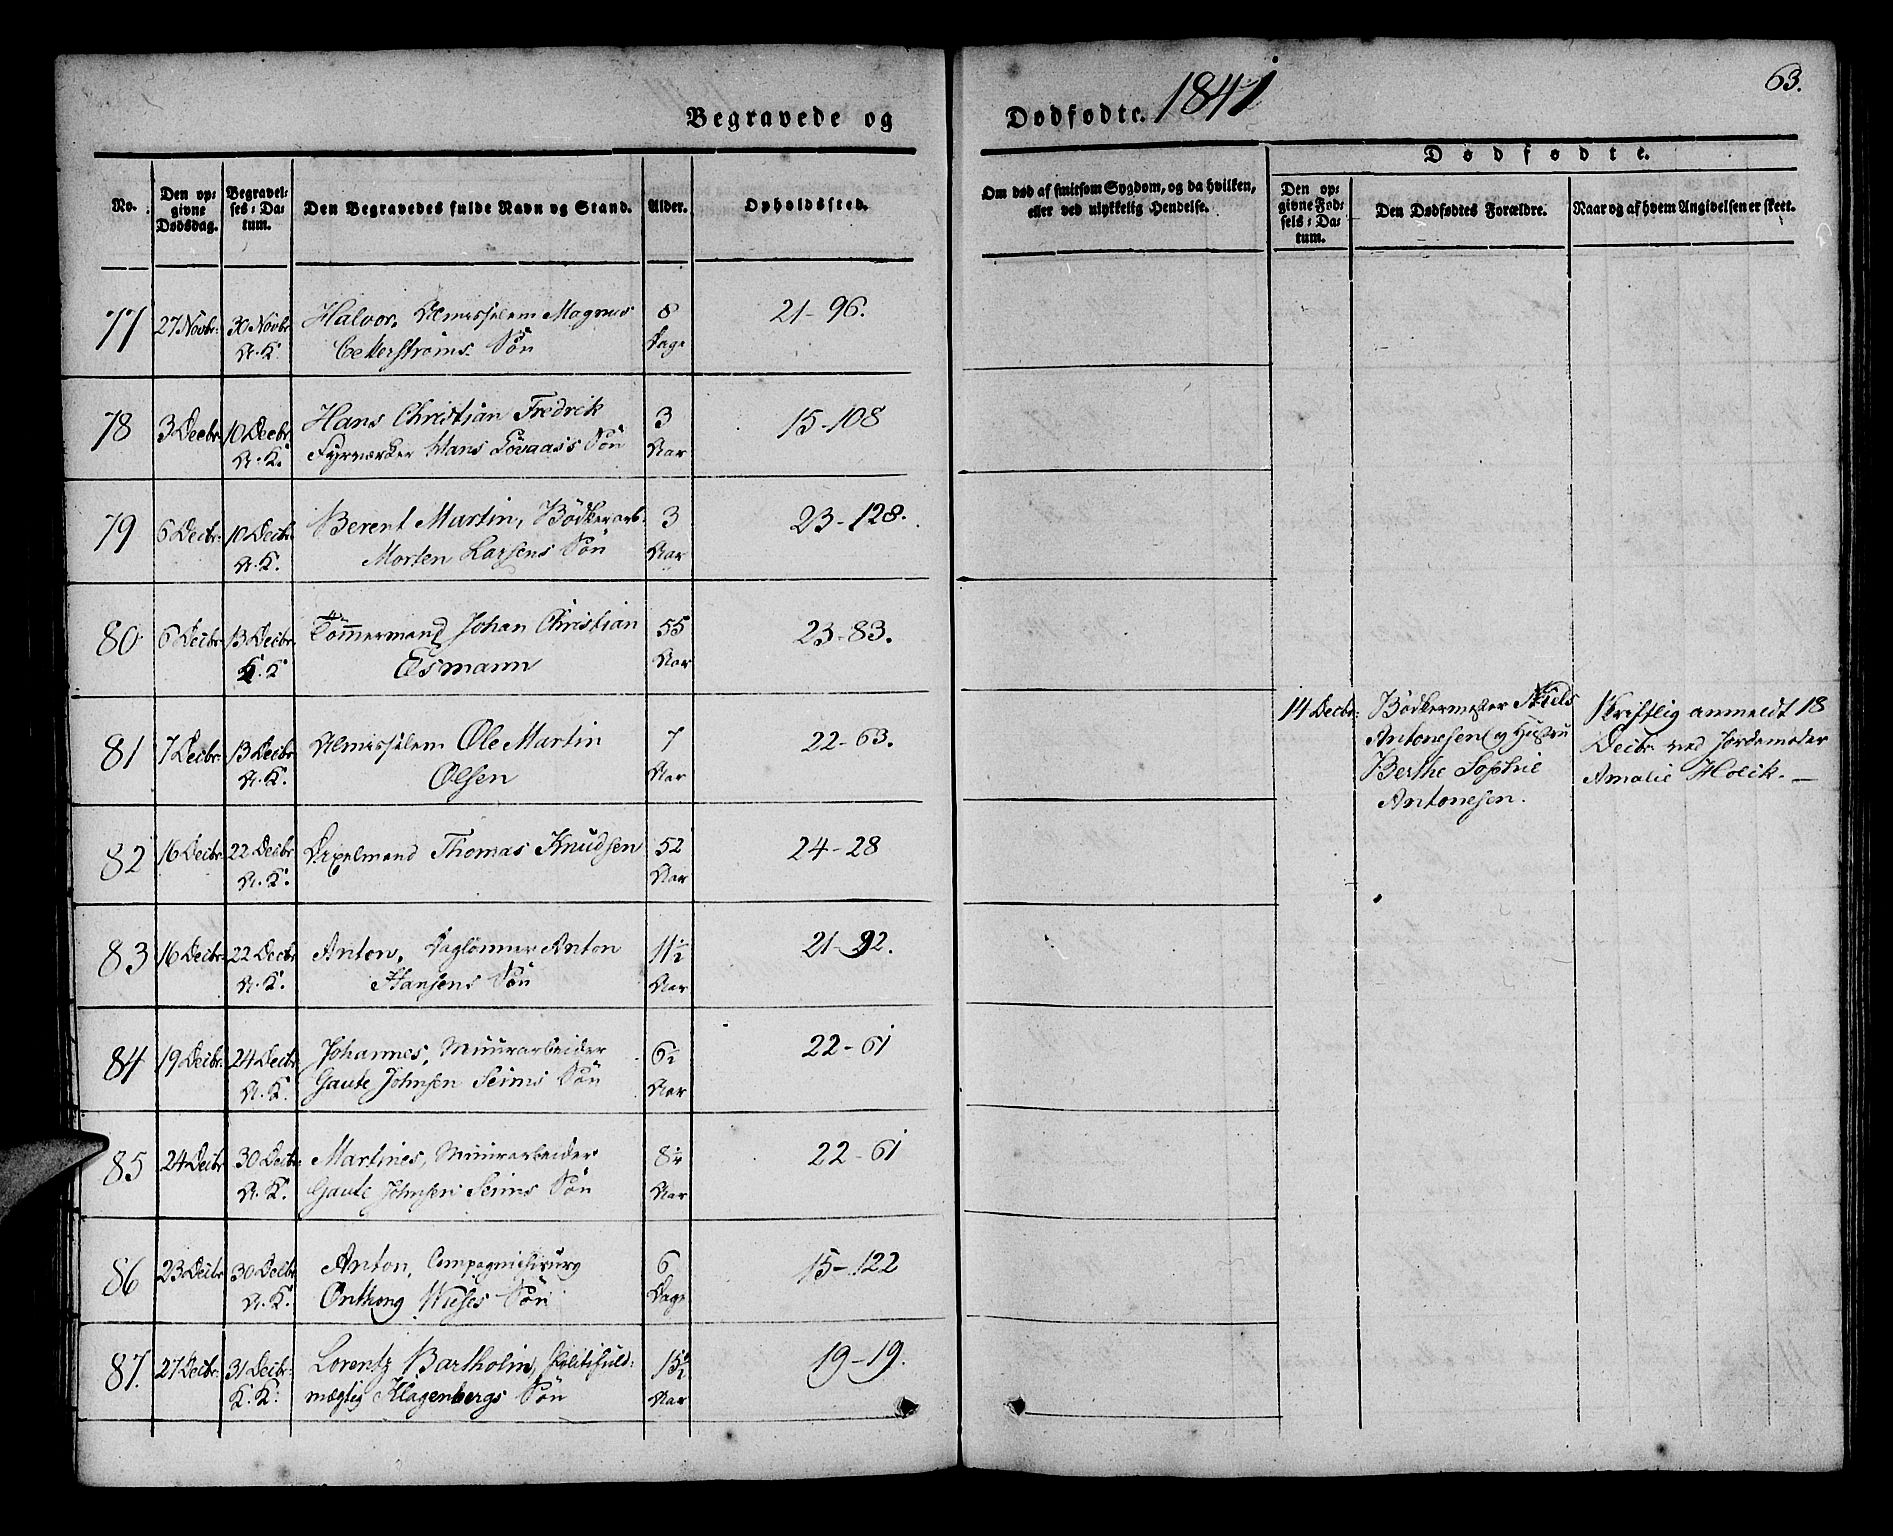 Begravede og
Dødfødte. 1841
63.
No.
Den op-
givne
Dødsdag.
Begravel-
ses-Da-
tum.
Den Begravedes fulde Navn og Stand.
Alder.
Opholdssted.
Om død af smitsom Sygdom, og da hvilken,
eller ved ulykkelig Hendelse.
Dødfødte.
Den op-
givne Fød-
sels-Da-
tum.
Den Dødfødtes Forældre.
Naar og af hvem Angivelsen er skeet.
77 27 Novbr. 30 Novbr. Halvor, Almisselem Magnus 8 21-96.
A. K. Søn Dage
78 3 Decbr. 10 Decbr. Hans Christian Fredrik 3 15-108
A. K. Fyrværker Hans Søn Aar
79 6 Decbr. 10 Decbr. Berent Martin, Bödkerarb. 3 23-128.
A. K. Morten Larsens Søn Aar
80 6 Decbr. 13 Decbr. Tömmermand Johan Christian 55 23-83.
K. K. Esmann Aar
81 7 Decbr. 13 Decbr. Almisselem Ole Martin 7 22-63.
A. K. Olsen Aar
14 Decbr. Bödkermester Niels
Antonesen og Hustru
Berthe Sophie
Antonesen.
Skriftlig anmeldt 18
Decbr. ved Jordemoder
Amalie Holck.
82 16 Decbr. 22 Decbr. Thomas Knudsen 52 24-28
A. K. Aar
83 16 Decbr. 22 Decbr. Anton, Daglönner Anton 1½ 21-92.
A. K. Hansens Søn Aar
84 19 Decbr. 24 Decbr. Johannes, Muurarbeider 6½ 22-61
A. K. Gaute Johnsen Seims Søn Aar
85 24 Decbr. 30 Decbr. Martines, Muurarbeider 8¼ 22-61
A. K. Gaute Johnsen Seims Søn Aar
86 23 Decbr. 30 Decbr. Anton, Compagnichirurg 6 15-122
A. K. Wieses Søn Dage
87. 27 Decbr. 31 Decbr. Lorentz Bartholin, Politifuld- 15½ 19-19.
K. K. mægtig Klagenbergs Søn Aar